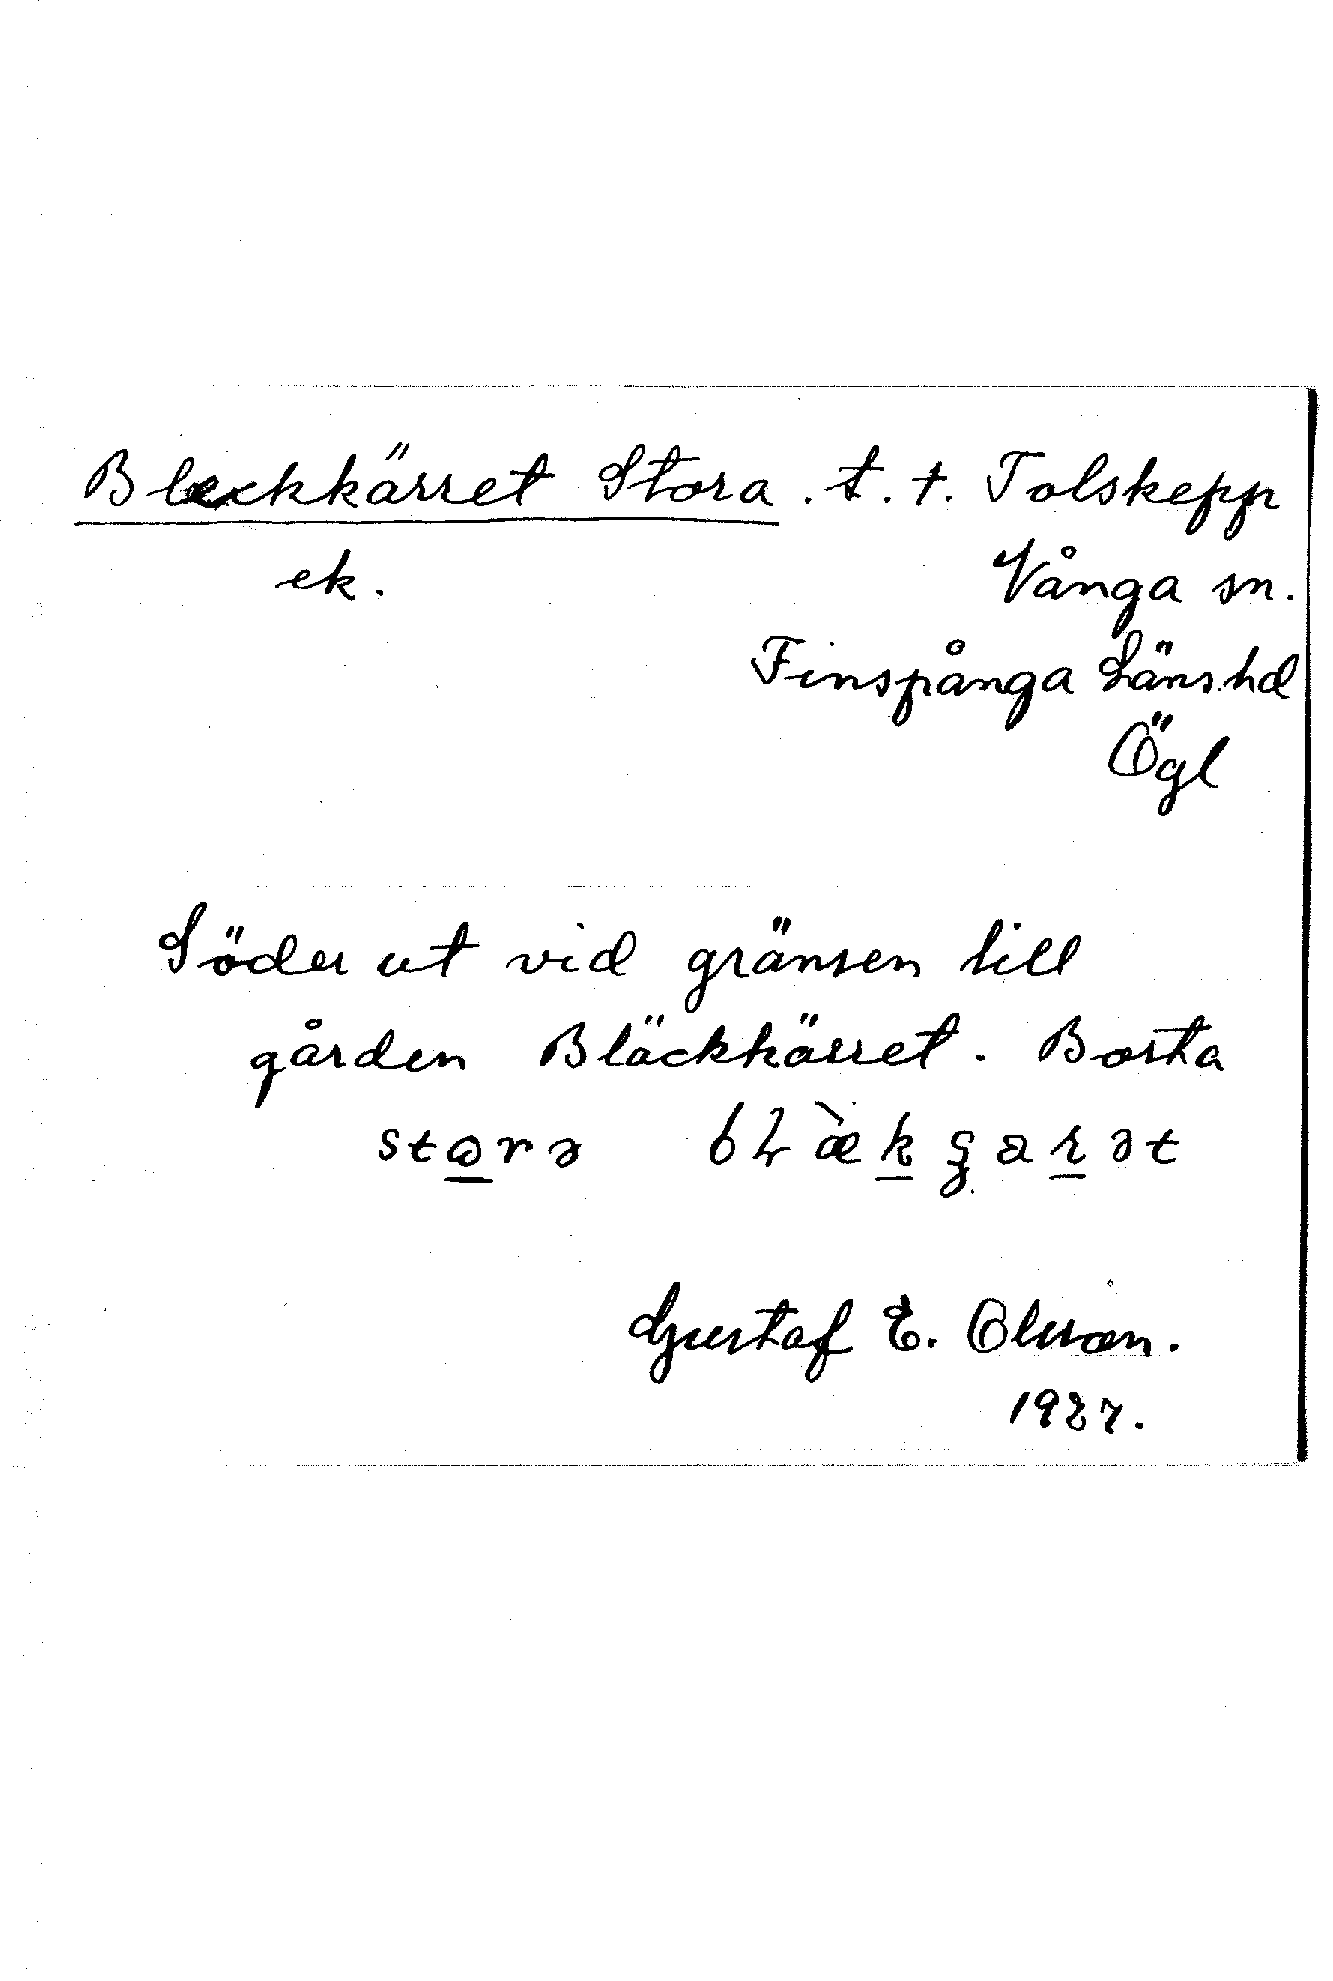 Bleckkärret Stora . t. t. Tolskepp
ek. Vånga sn.
Finspånga Läns hd
Ögl
Söder ut vid gränsen till
gården Bläckkärret. Borta
Gustaf E. Olsson.
1927.